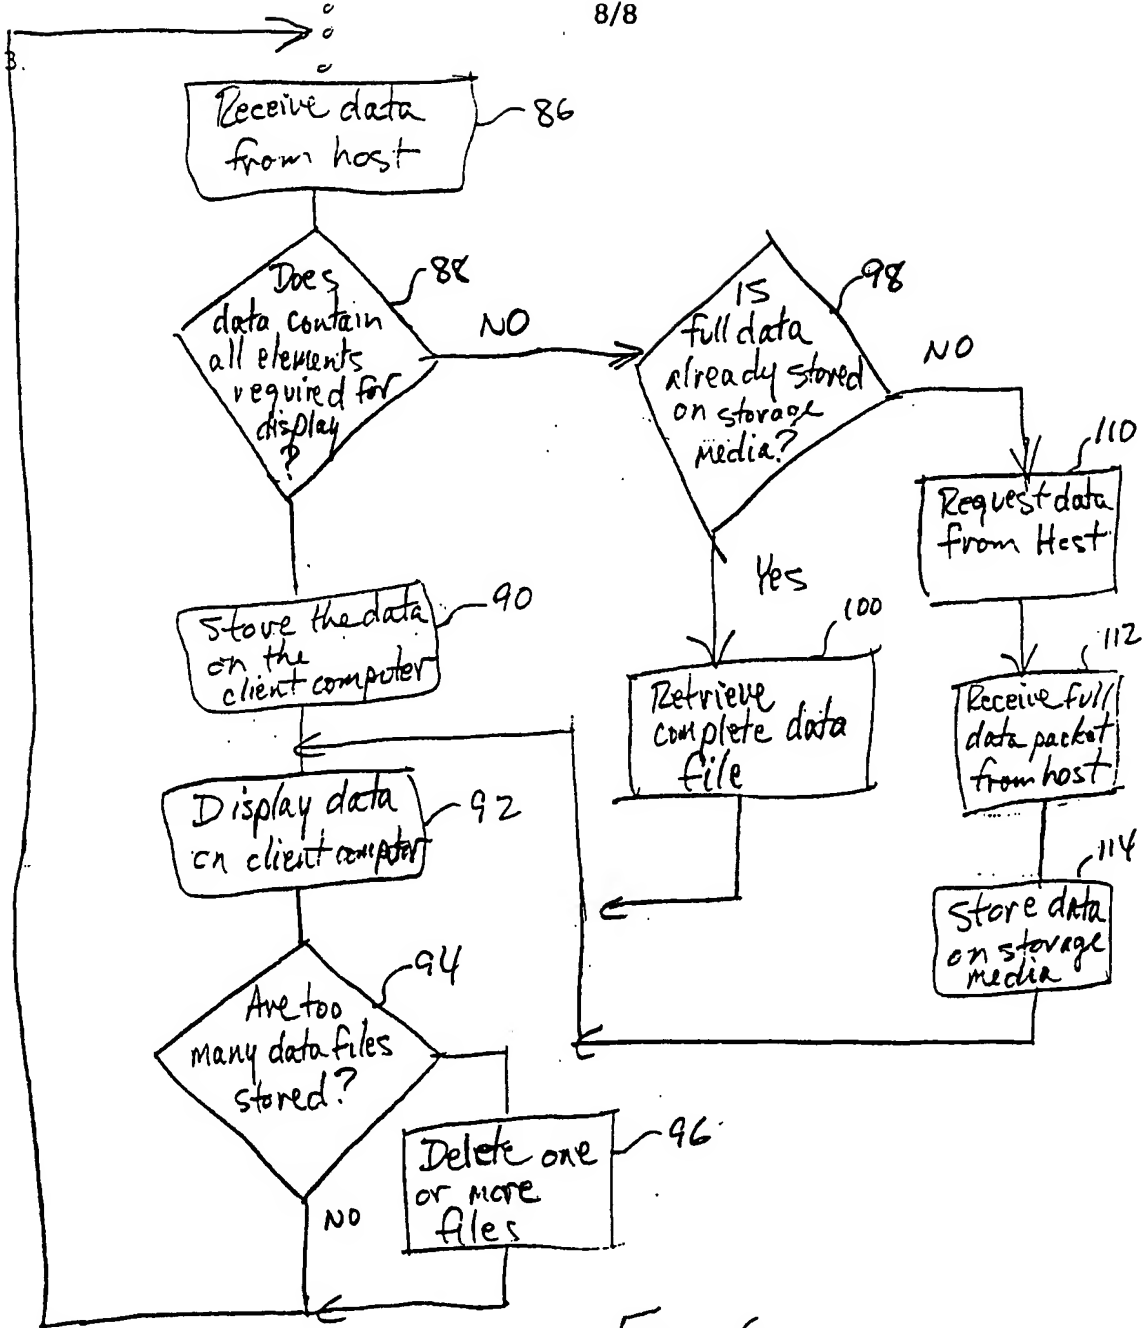 8/8
Receive data
from host
86
Does
data contain
all elements
required for
display
?
88
NO
IS
full data
already stored
on storage
media?
98
NO
Yes
110
Request data
from Host
Store the data
on the
client computer
90
100
Retrieve
complete data
file
112
Receive full
data packet
from host
Display data
on client computer
92
114
Store data
on storage
media
Are too
many data files
stored?
94
NO
Delete one
or more
files
96